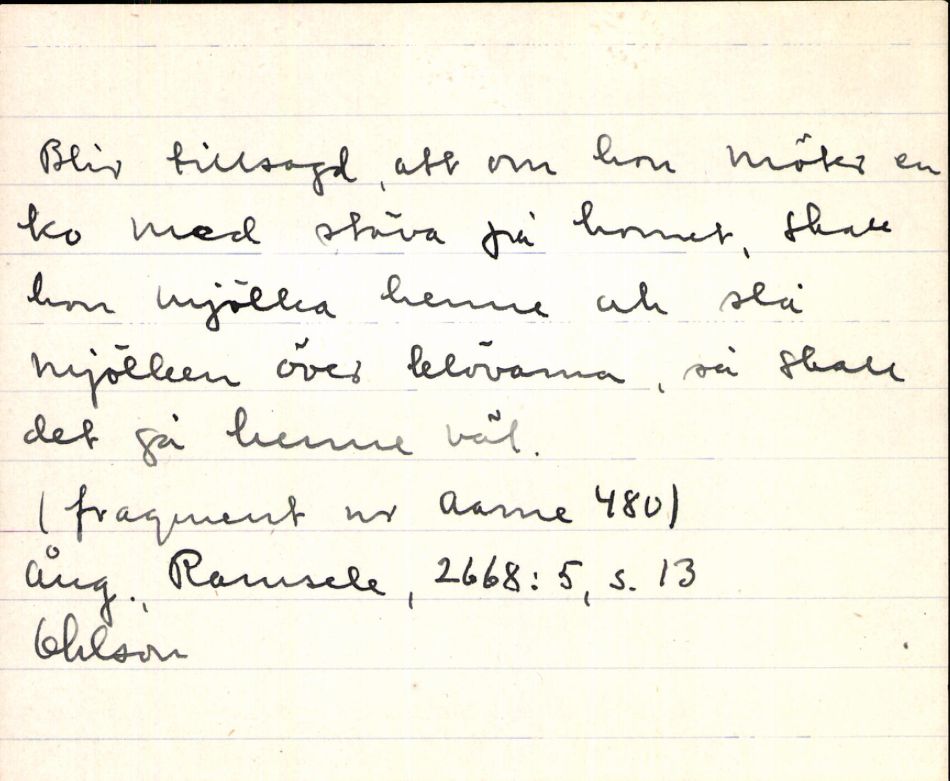 Blir tillsagd, att om hon möter en
ko med stäva på hornet, skall
hon mjölka henne och slå
mjölken över klövarna, så skall
det gå henne väl.
(fragment ur Aarne 480)
Ång., Ramsele, 2668:5, s. 13
Ohlson